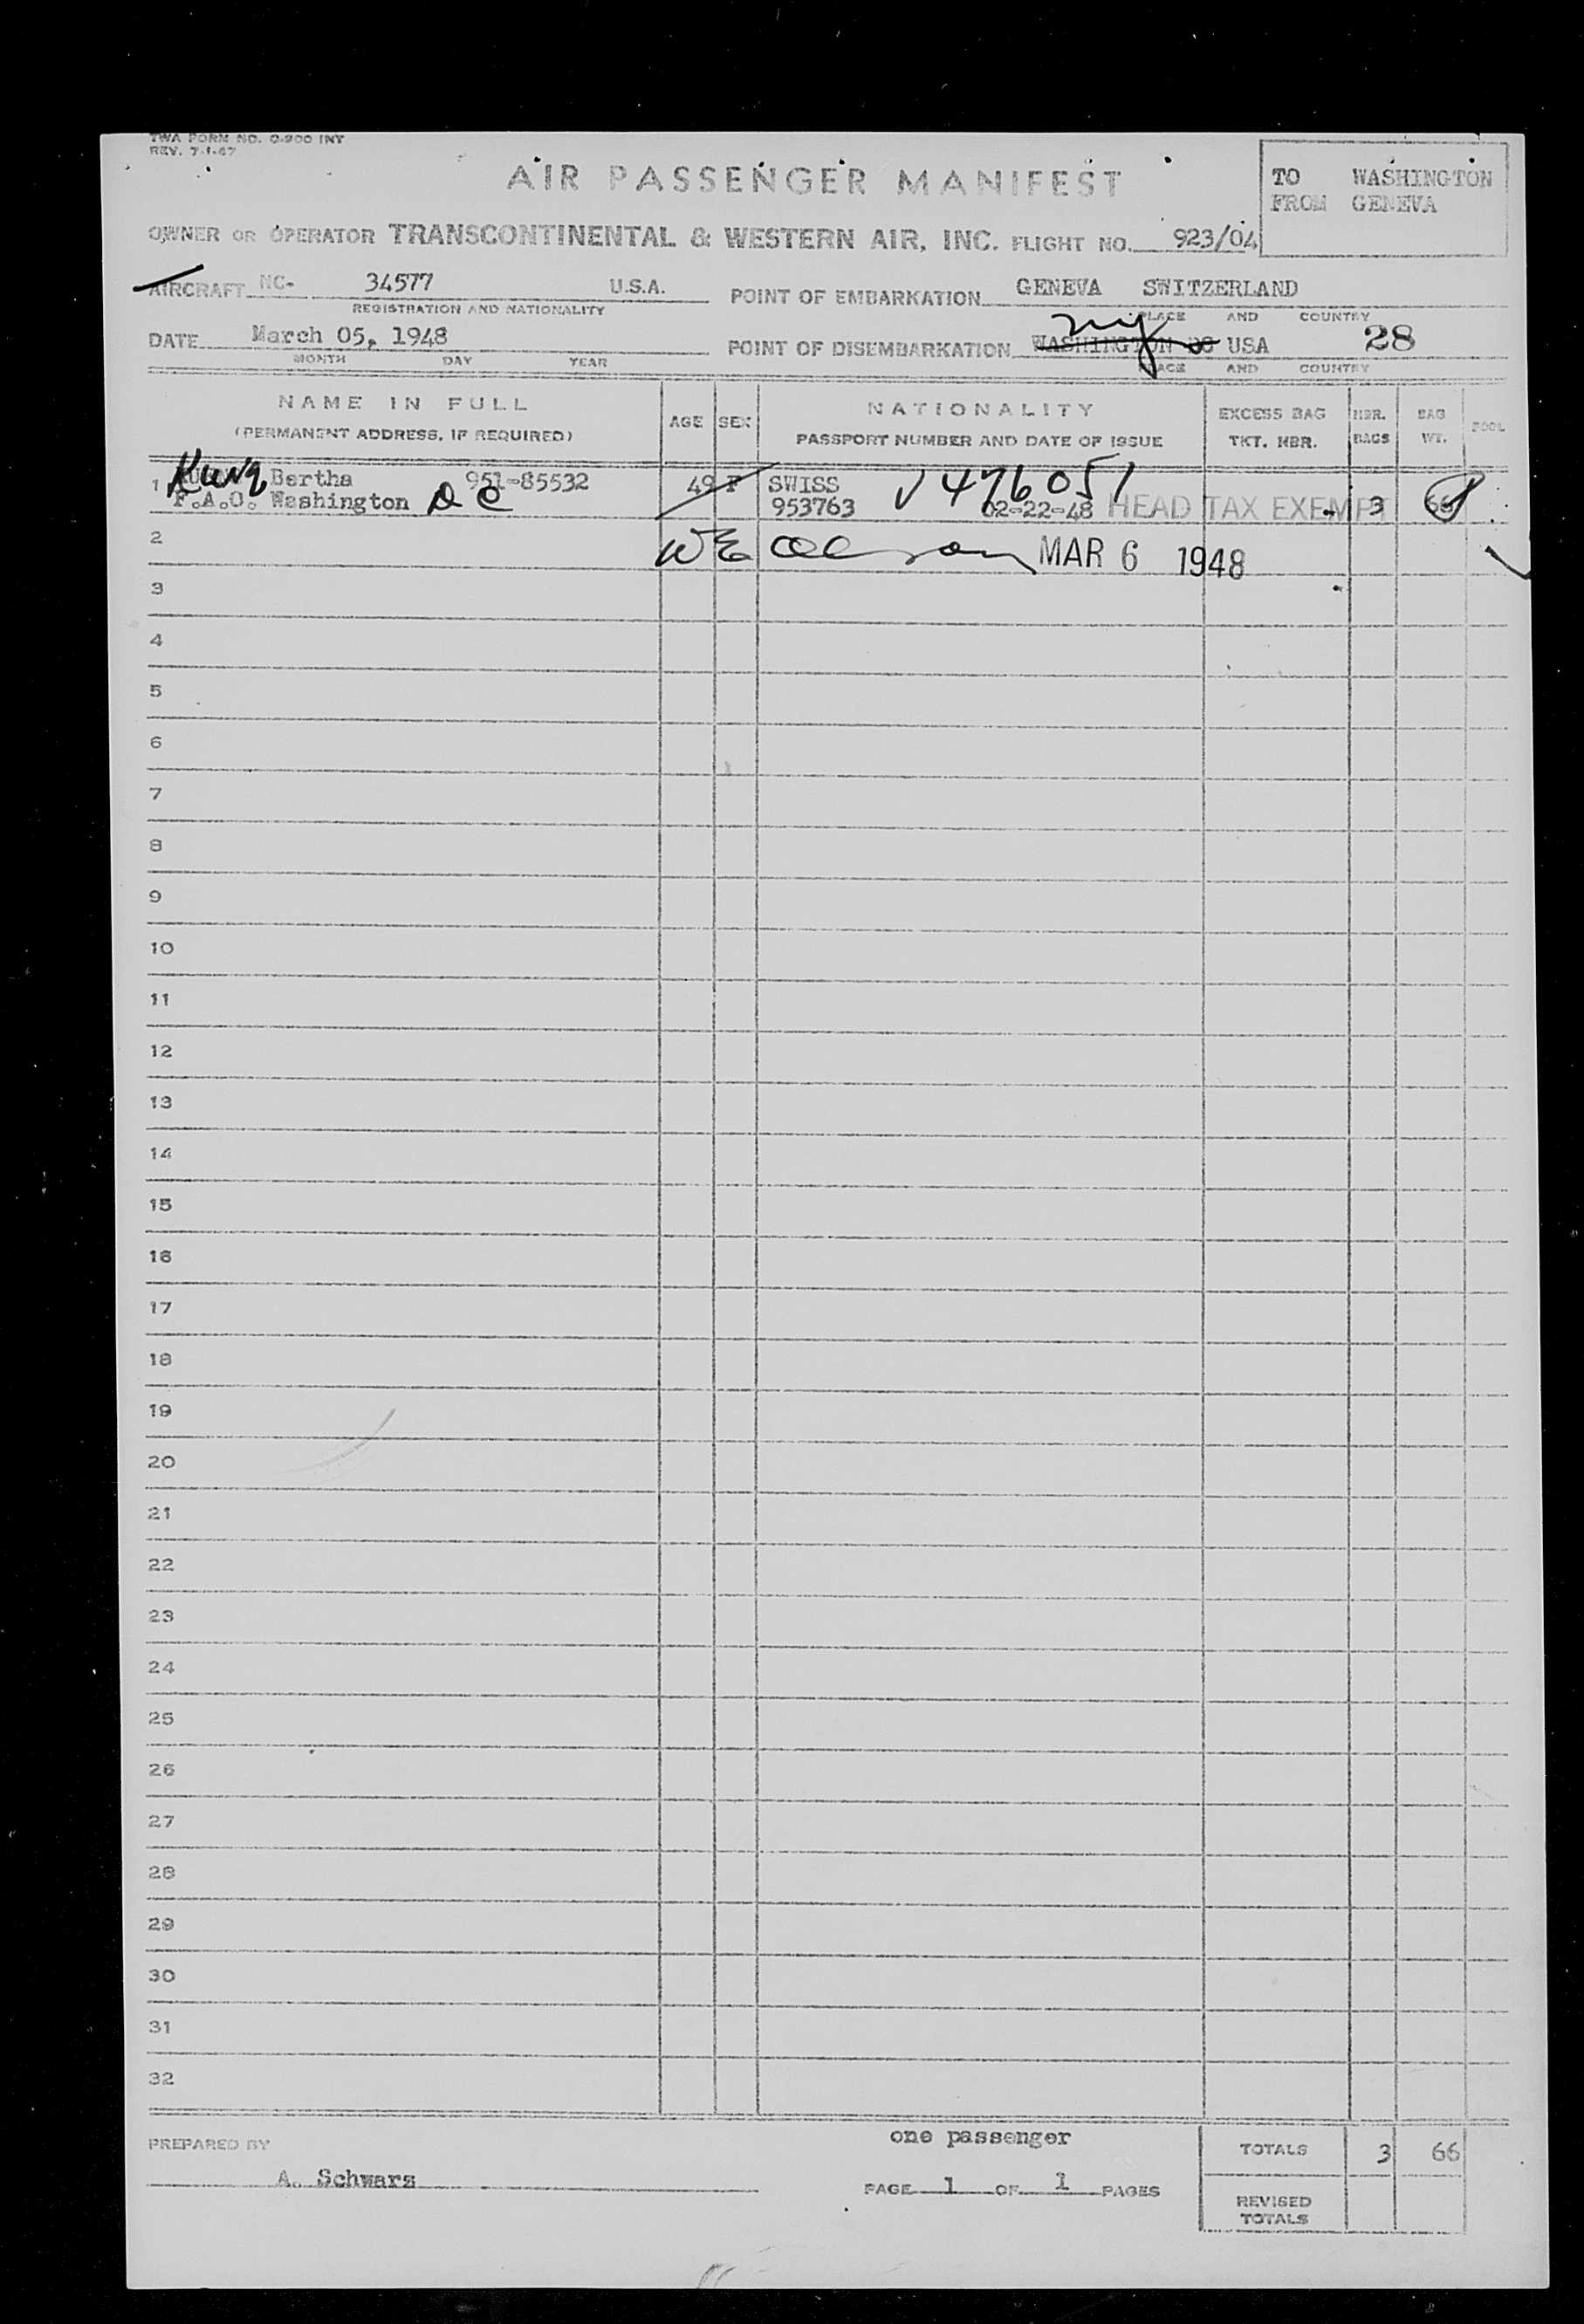 TWA FORM NO. O-200 INT
REV. 7-1-47
AIR PASSENGER MANIFEST
TO WASHINGTON
FROM GENEVA
OWNER OR OPERATOR TRANSCONTINENTAL & WESTERN AIR, INC. FLIGHT NO. 923/04
AIRCRAFT NC- 34577 U.S.A.
REGISTRATION AND NATIONALITY
POINT OF EMBARKATION GENEVA SWITZERLAND
PLACE AND COUNTRY
DATE March 05, 1948
MONTH DAY YEAR
ny
POINT OF DISEMBARKATION WASHINGTON DC USA 28
PLACE AND COUNTRY
NAME IN FULL
(PERMANENT ADDRESS, IF REQUIRED)
AGE
SEX
NATIONALITY
PASSPORT NUMBER AND DATE OF ISSUE
EXCESS BAG
TKT. NBR.
NBR.
BAGS
BAG
WT.
POOL
1 Bertha 951-85532 49 F SWISS V476051
F.A.O. Washington DC 953763 02-22-48 HEAD TAX EXEMPT 3 66
2 MAR 6 1948
3
4
5
6
7
8
9
10
11
12
13
14
15
16
17
18
19
20
21
22
23
24
25
26
27
28
29
30
31
32
PREPARED BY
A. Schwarz
one passenger
PAGE 1 OF 1 PAGES
TOTALS 3 66
REVISED
TOTALS